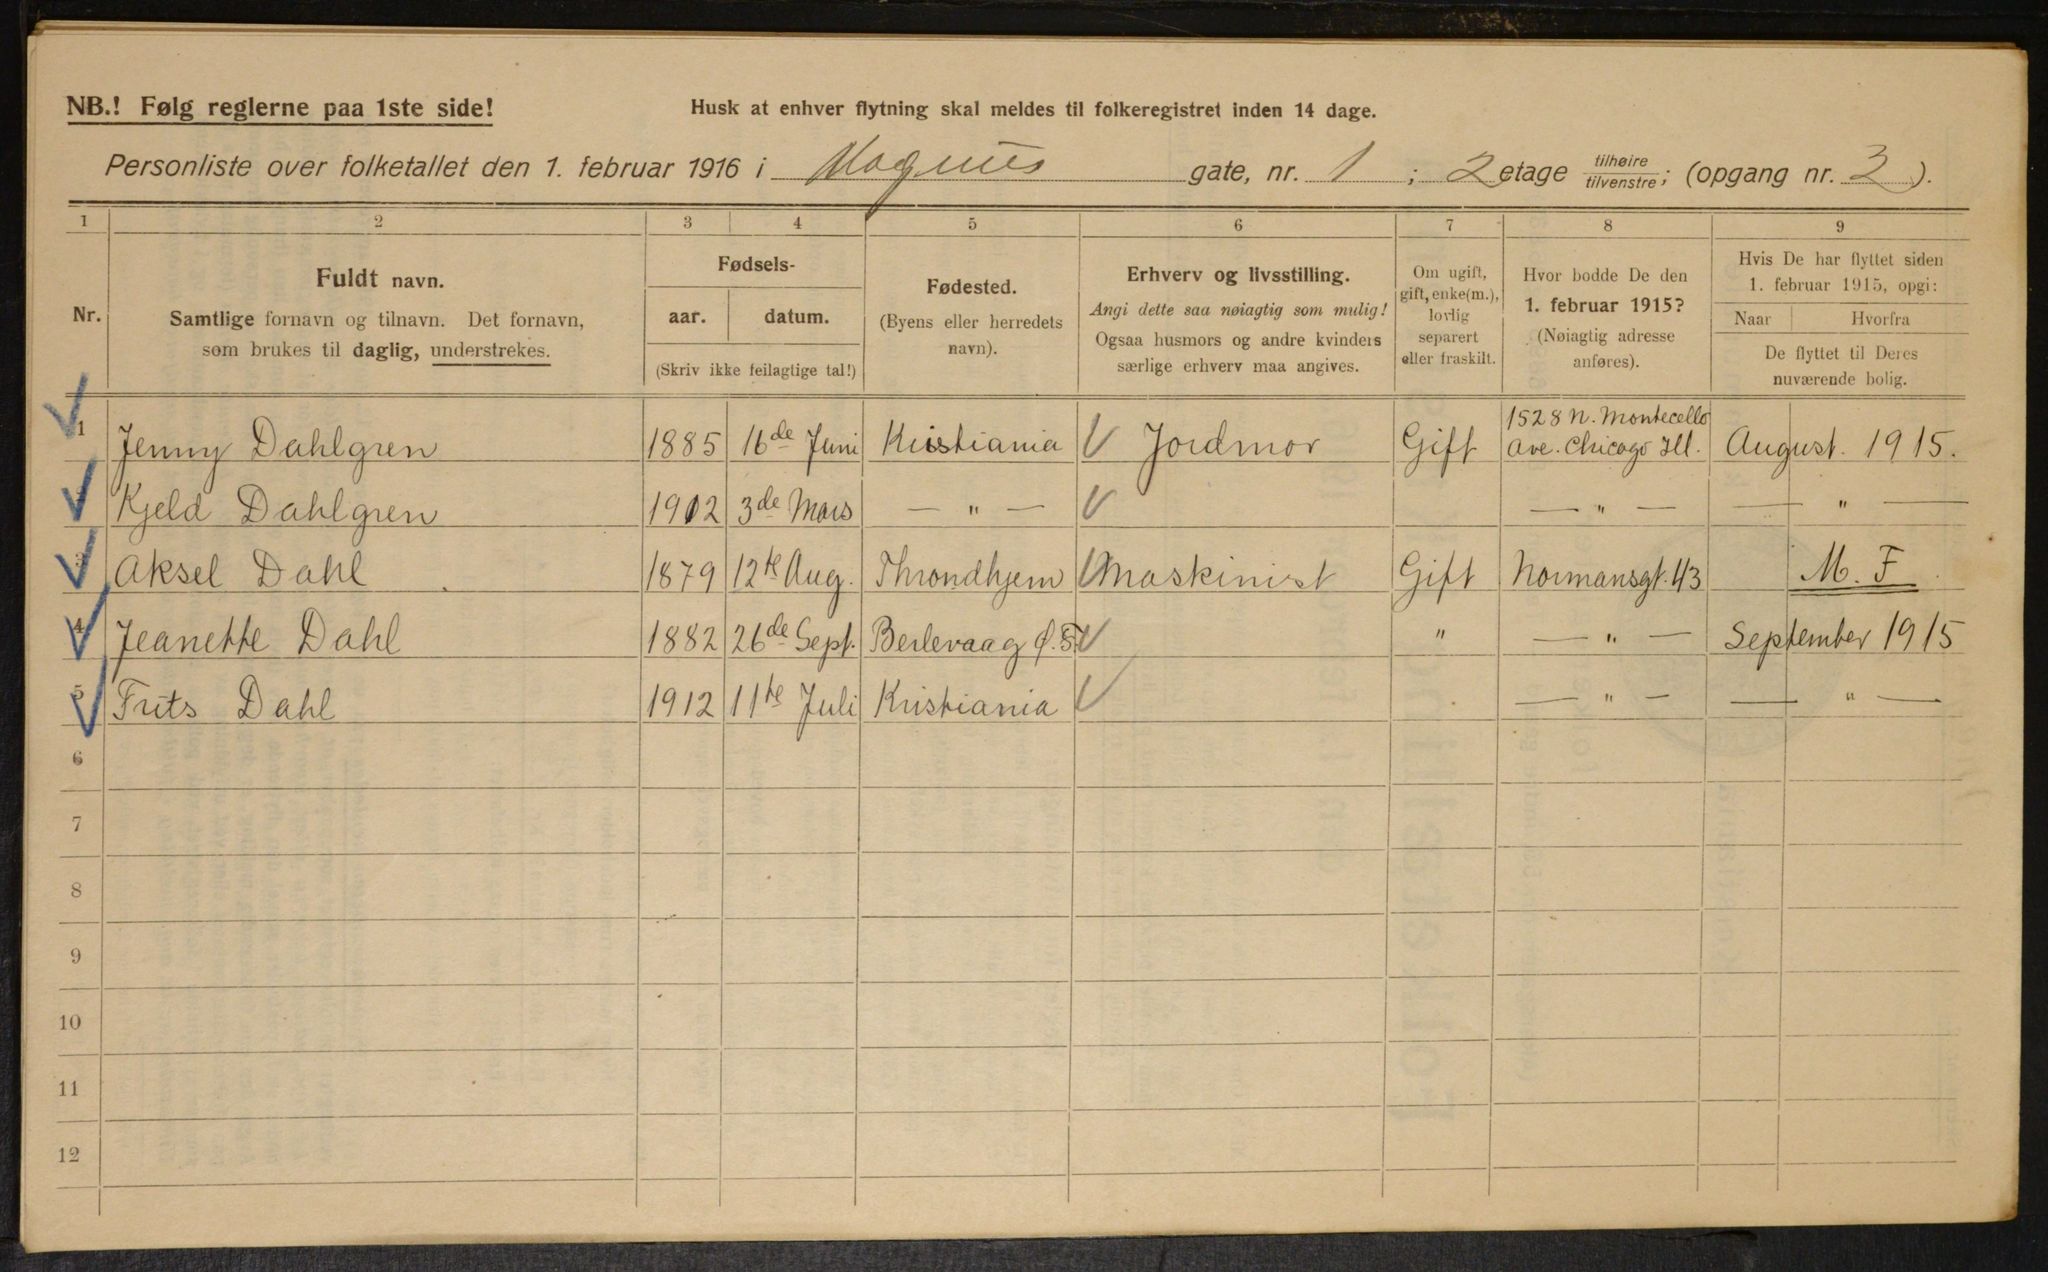 NB.! Følg reglerne paa 1ste side! Husk at enhver flytning skal meldes til folkeregistret inden 14 dage.
Personliste over folketallet den 1. februar 1916 i Magnus gate, nr. 1 ; 2 etage tilhøire/tilvenstre; (opgang nr. 3 ).
1 2 3 4 5 6 7 8 9
Nr.
Fuldt navn.
Samtlige fornavn og tilnavn. Det fornavn,
som brukes til daglig, understrekes.
Fødsels-
aar. datum.
(Skriv ikke feilagtige tal!)
Fødested.
(Byens eller herredets
navn).
Erhverv og livsstilling.
Angi dette saa nøiagtig som mulig!
Ogsaa husmors og andre kvinders
særlige erhverv maa angives.
Om ugift,
gift, enke(m.),
lovlig
separert
eller fraskilt.
Hvor bodde De den
1. februar 1915?
(Nøiagtig adresse
anføres).
Hvis De har flyttet siden
1. februar 1915, opgi:
Naar Hvorfra
De flyttet til Deres
nuværende bolig.
1 Jenny Dahlgren 1885 16de Juni Kristiania Jordmor Gift 1528 N. Montecello
Ave. Chicago Ill. August. 1915.
Kjeld Dahlgren 1912 3de Mars — " — — " — — " —
3 Aksel Dahl 1879 12te Aug. Throndhjem Maskinist Gift Normansgt. 43 M. F
4 Jeanette Dahl 1882 26de Sept. Berlevaag Ø. F. " — " — September 1915
5 Frits Dahl 1912 11te Juli Kristiania — " — — " —
6
7
8
9
10
11
12